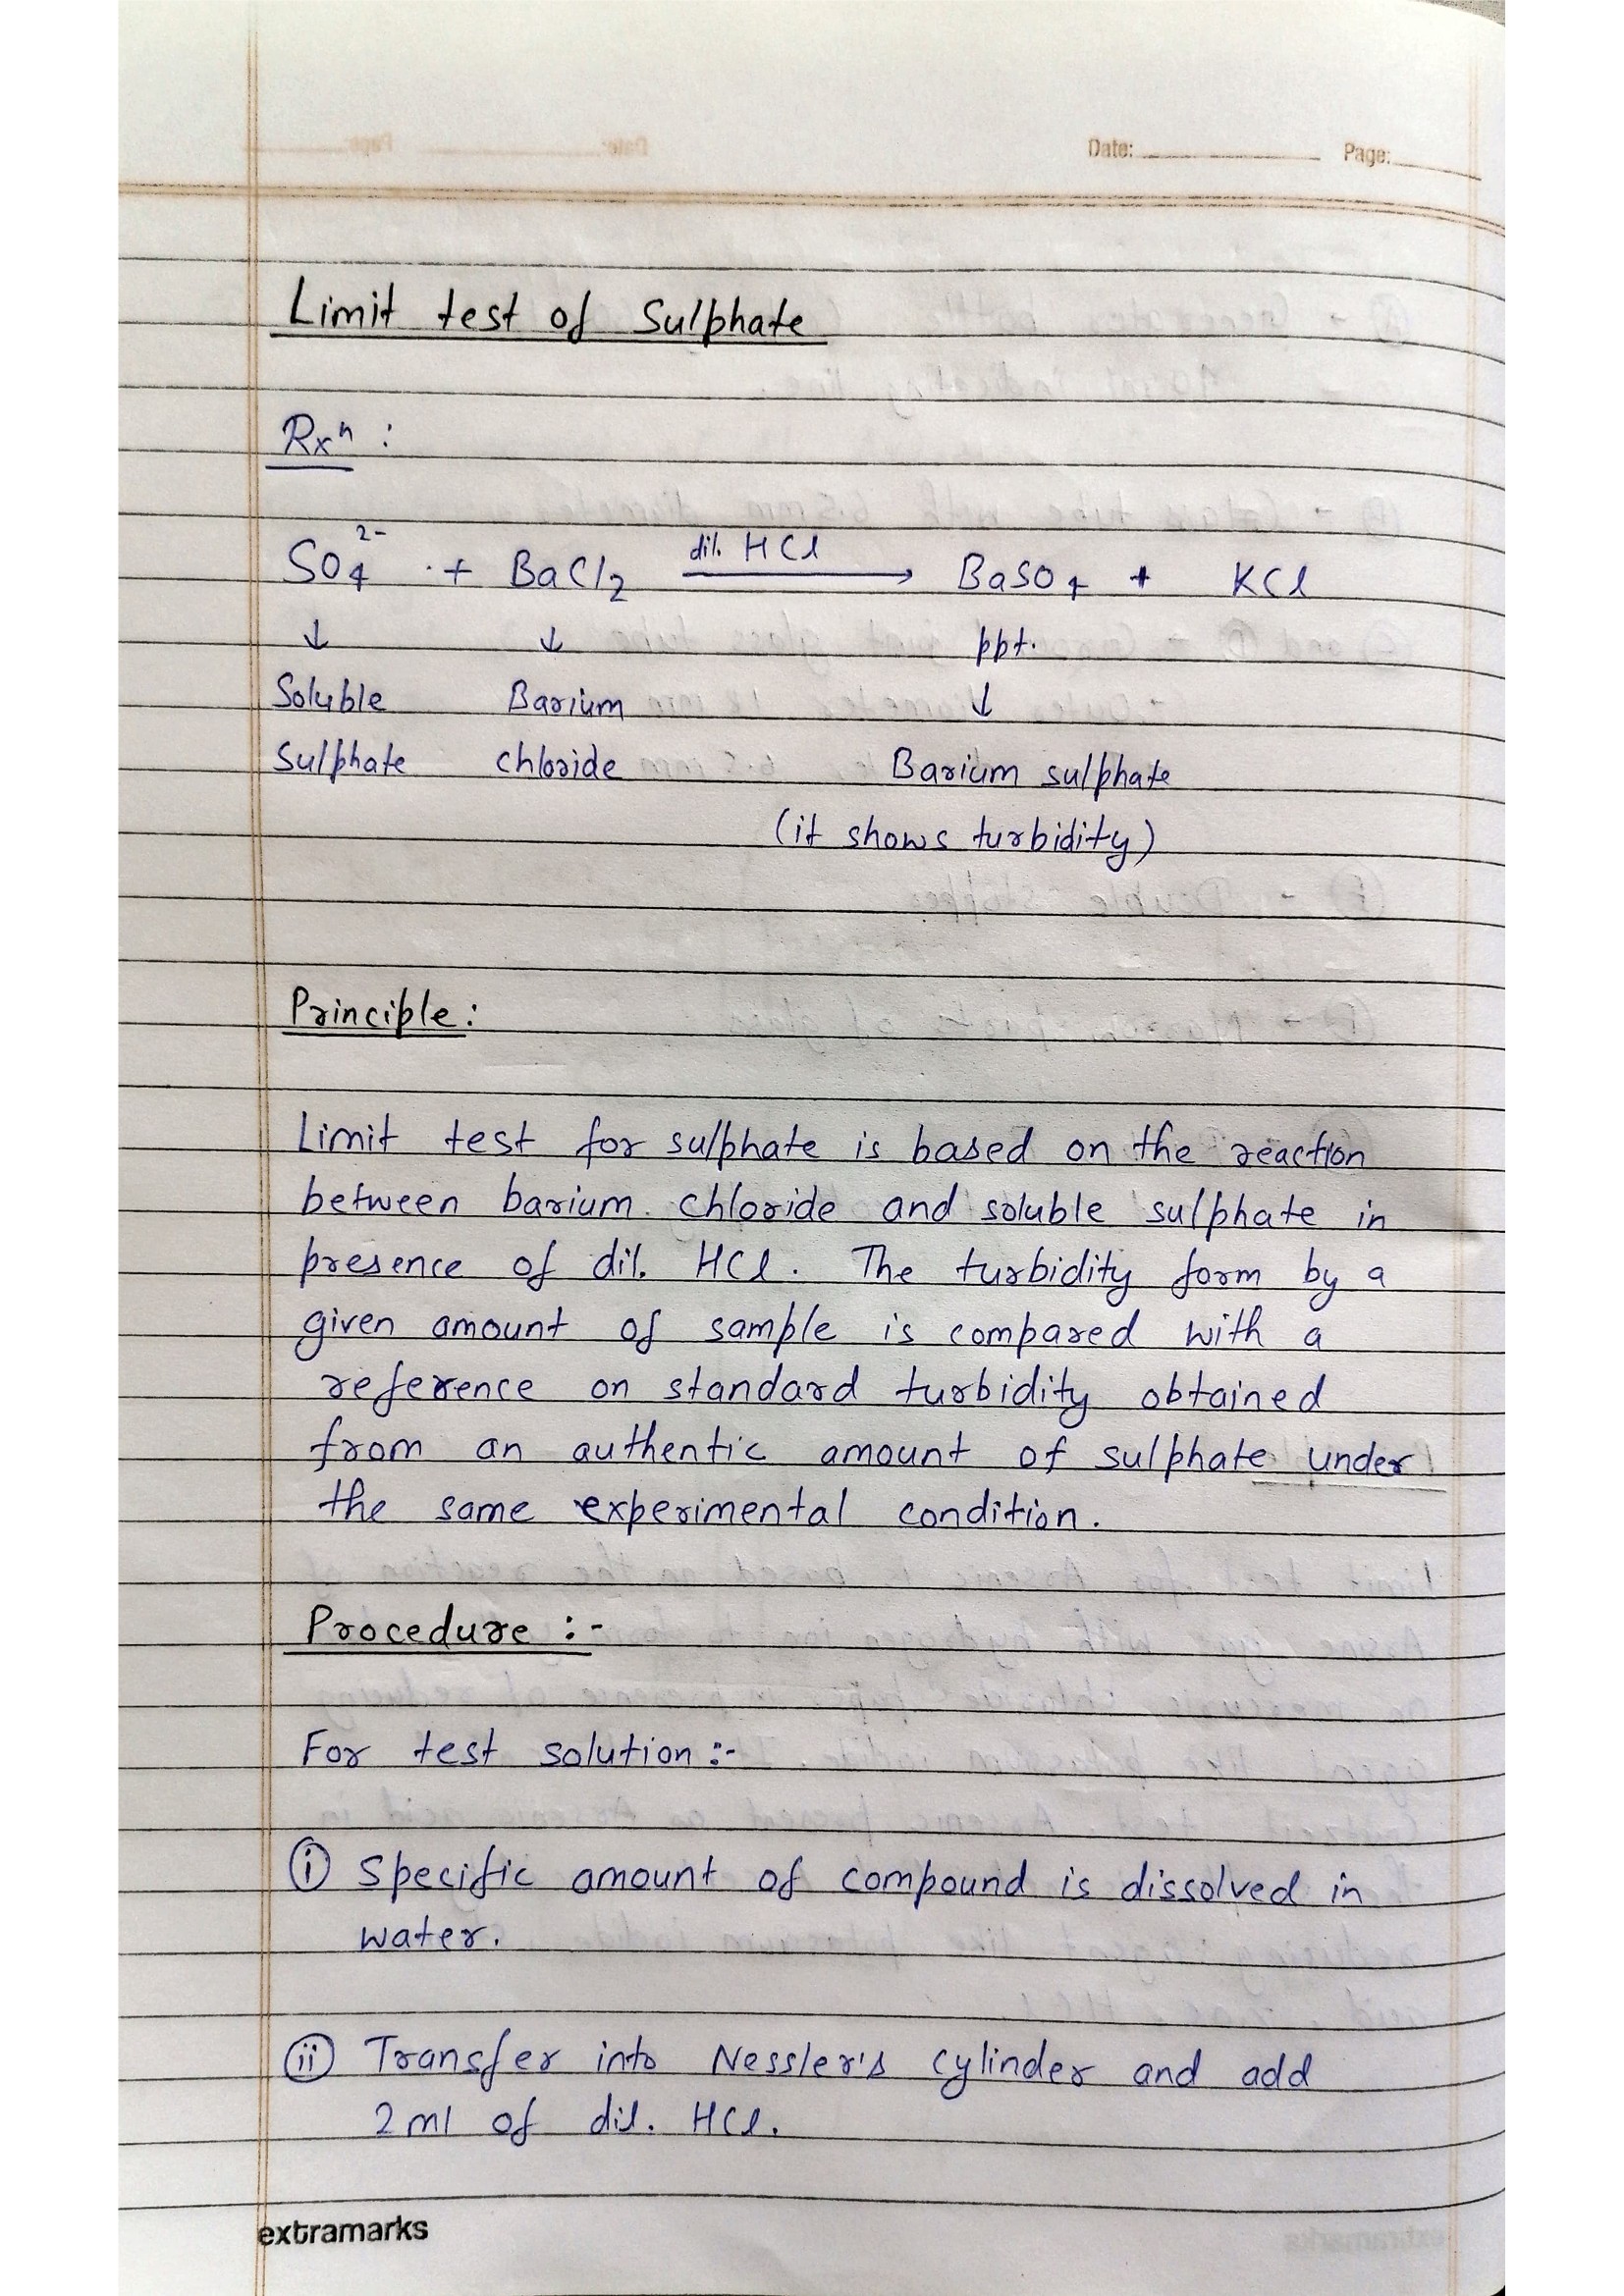 Date: Page:
Limit test of Sulphate
Rxn :
SO4 2- + BaCl2 dil. HCl → BaSO4 + KCl
↓ ↓ ppt.
Soluble Barium ↓
Sulphate chloride Barium sulphate
(it shows turbidity)
Principle :
Limit test for sulphate is based on the reaction
between barium chloride and soluble sulphate in
presence of dil. HCl. The turbidity form by a
given amount of sample is compared with a
reference on standard turbidity obtained
from an authentic amount of sulphate under
the same experimental condition.
Procedure :-
For test solution :-
(i) Specific amount of compound is dissolved in
water.
(ii) Transfer into Nessler's cylinder and add
2ml of dil. HCl.
extramarks